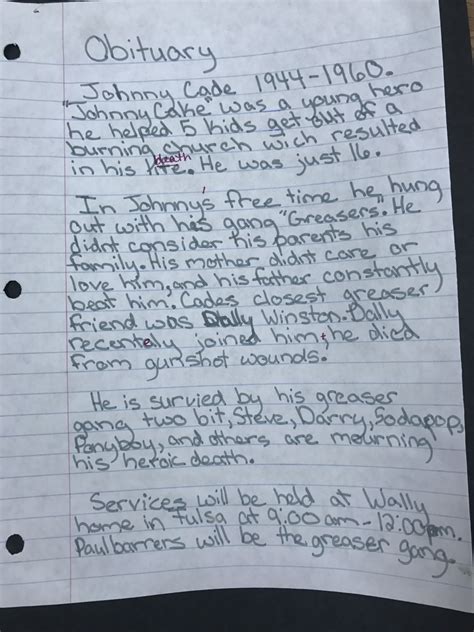 Obituary
Johnny Cade 1944-1960.
"Johnny Cake" was a young hero
he helped 5 kids get out of a
burning church wich resulted
death
in his life. He was just 16.
In Johnny's free time he hung
out with his gang "Greasers." He
didnt consider his parents his
family. His mother didnt care or
love him, and his father constantly
beat him. Cades closest greaser
friend was Dally Winston. Dally
recently joined him, he died
from gunshot wounds.
He is survied by his greaser
gang two bit, Steve, Darry, Sodapop,
Ponyboy, and others are mourning
his heroic death.
Services will be held at Wally
home in tulsa at 9:00am-12:00pm.
Paulbarrers will be the greaser gang.